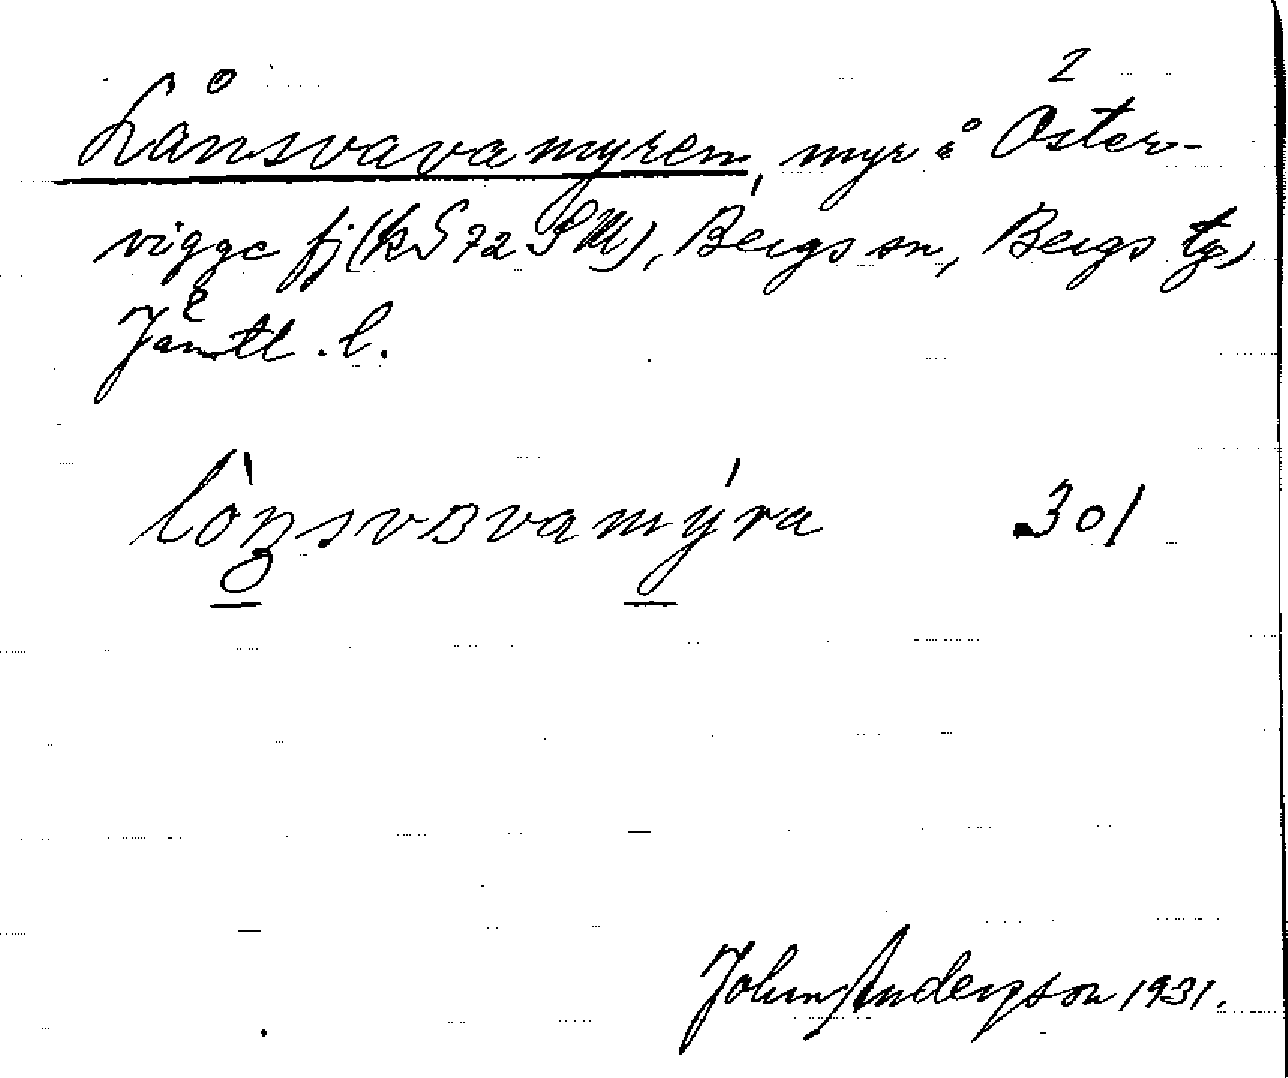 Lånsvavamyren, myr å Öster-
vigge fj (k S 72 SM), Bergs sn, Bergs tg,
Jämtl. l.
301
John Andersson 1931.